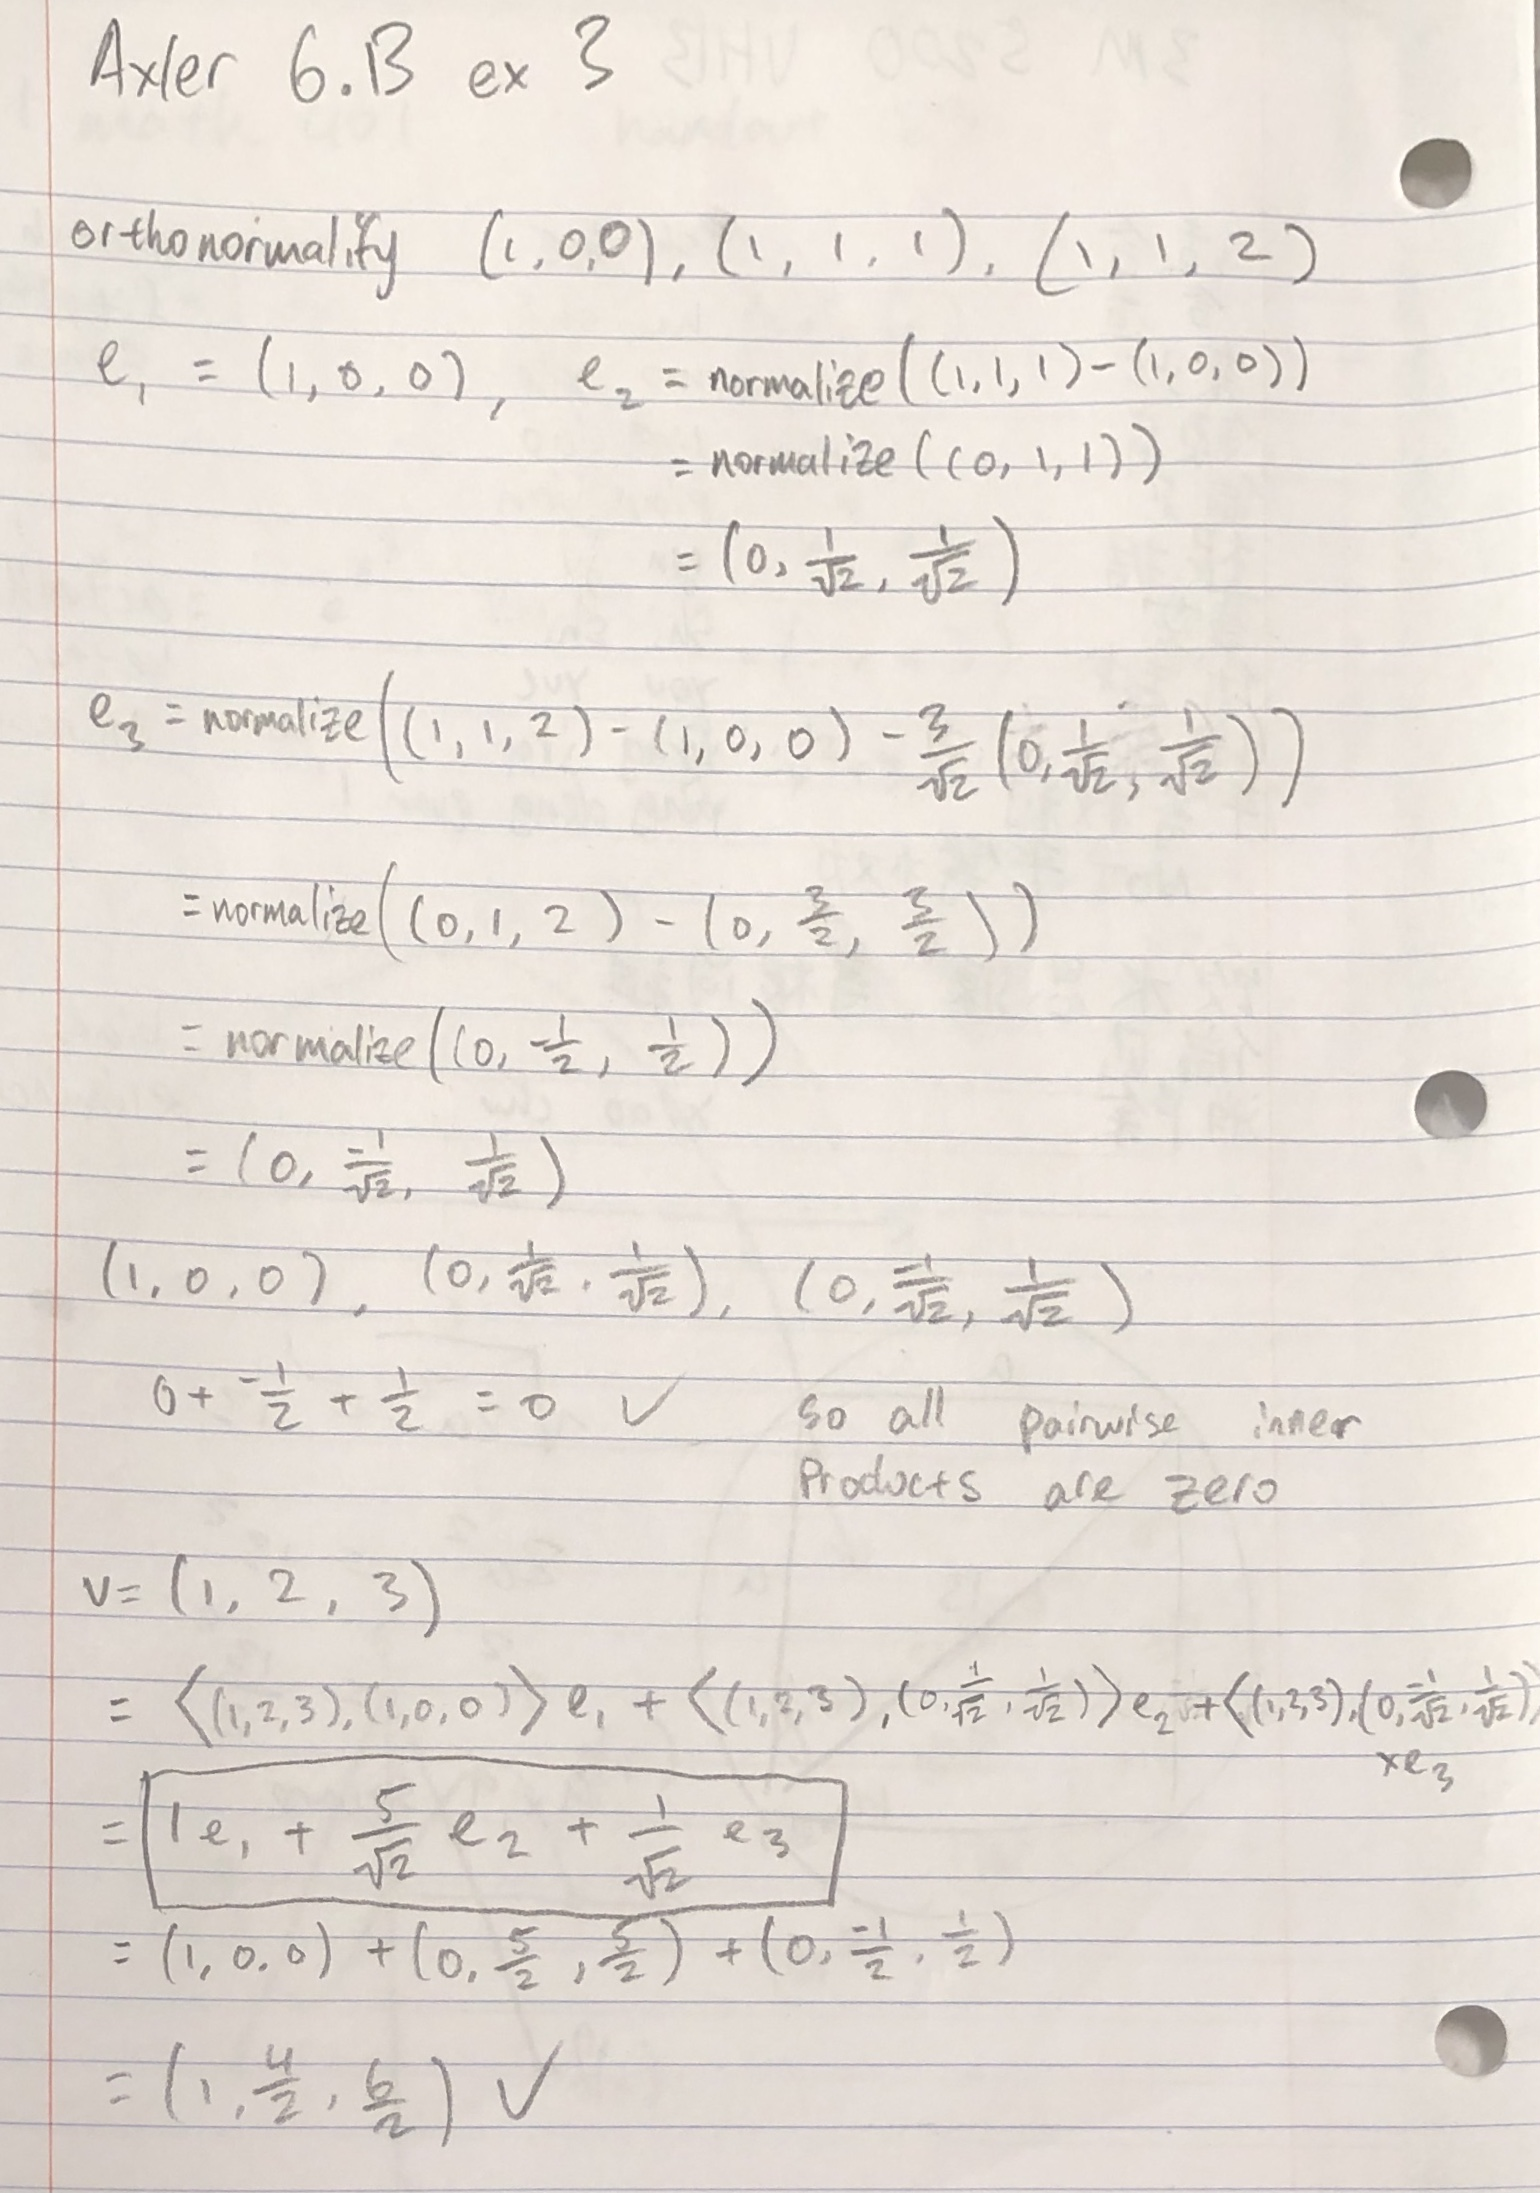 Axler 6.B ex 3
orthonormalify (1,0,0), (1, 1, 1), (1, 1, 2)
e₁ = (1, 0, 0), e₂ = normalize((1,1,1)-(1,0,0))
= normalize((0, 1, 1))
= (0, 1/√2, 1/√2)
e₃ = normalize((1, 1, 2) - (1, 0, 0) - 3/√2 (0, 1/√2, 1/√2))
= normalize((0, 1, 2) - (0, 3/2, 3/2))
= normalize((0, -1/2, 1/2))
= (0, -1/√2, 1/√2)
(1, 0, 0), (0, 1/√2, 1/√2), (0, -1/√2, 1/√2)
0 + -1/2 + 1/2 = 0 ✓ so all pairwise inner
products are zero
v = (1, 2, 3)
= ⟨(1,2,3),(1,0,0)⟩e₁ + ⟨(1,2,3),(0,1/√2,1/√2)⟩e₂ + ⟨(1,2,3),(0,-1/√2,1/√2)⟩
×e₃
= 1e₁ + 5/√2 e₂ + 1/√2 e₃
= (1, 0, 0) + (0, 5/2, 5/2) + (0, -1/2, 1/2)
= (1, 4/2, 6/2) ✓